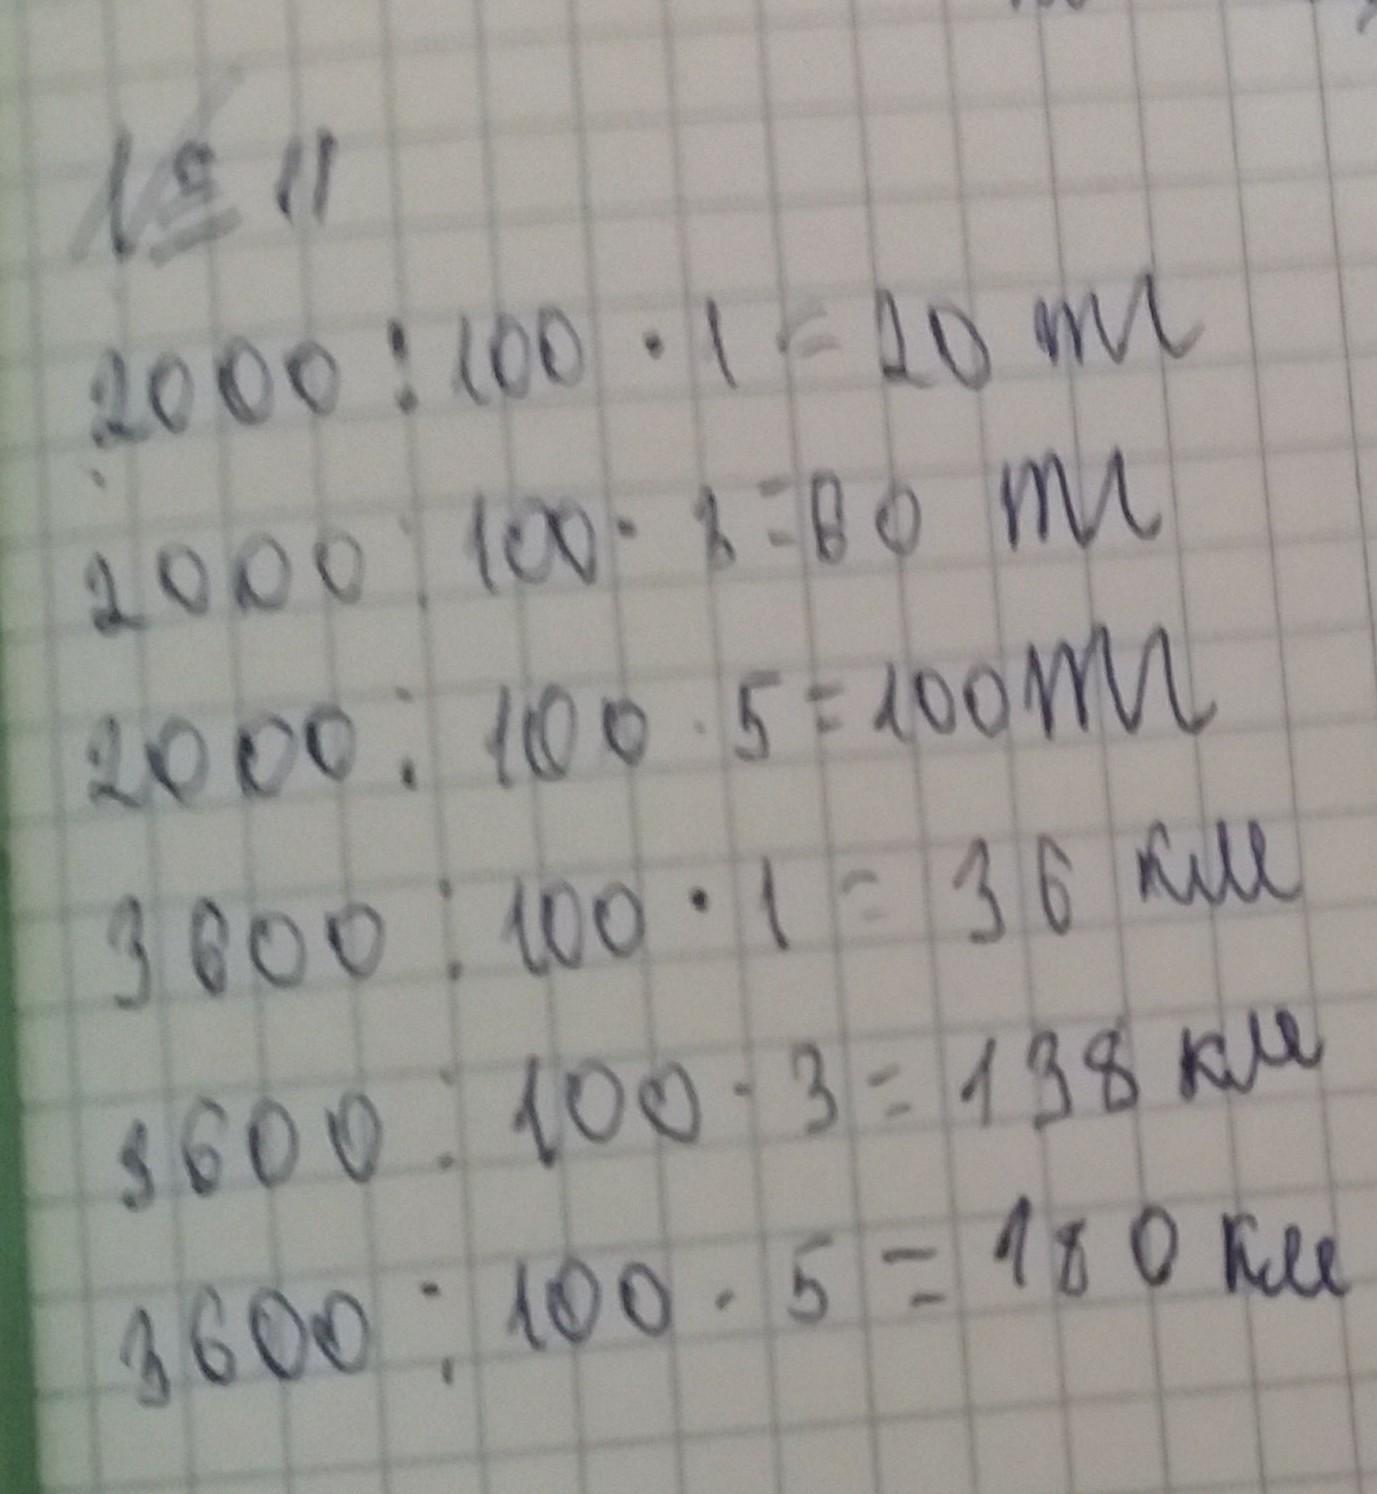 № 11
2000 : 100 · 1 = 20 тг
2000 : 100 · 3 = 60 тг
2000 : 100 · 5 = 100 тг
3600 : 100 · 1 = 36 км
3600 : 100 · 3 = 138 км
3600 : 100 · 5 = 180 км